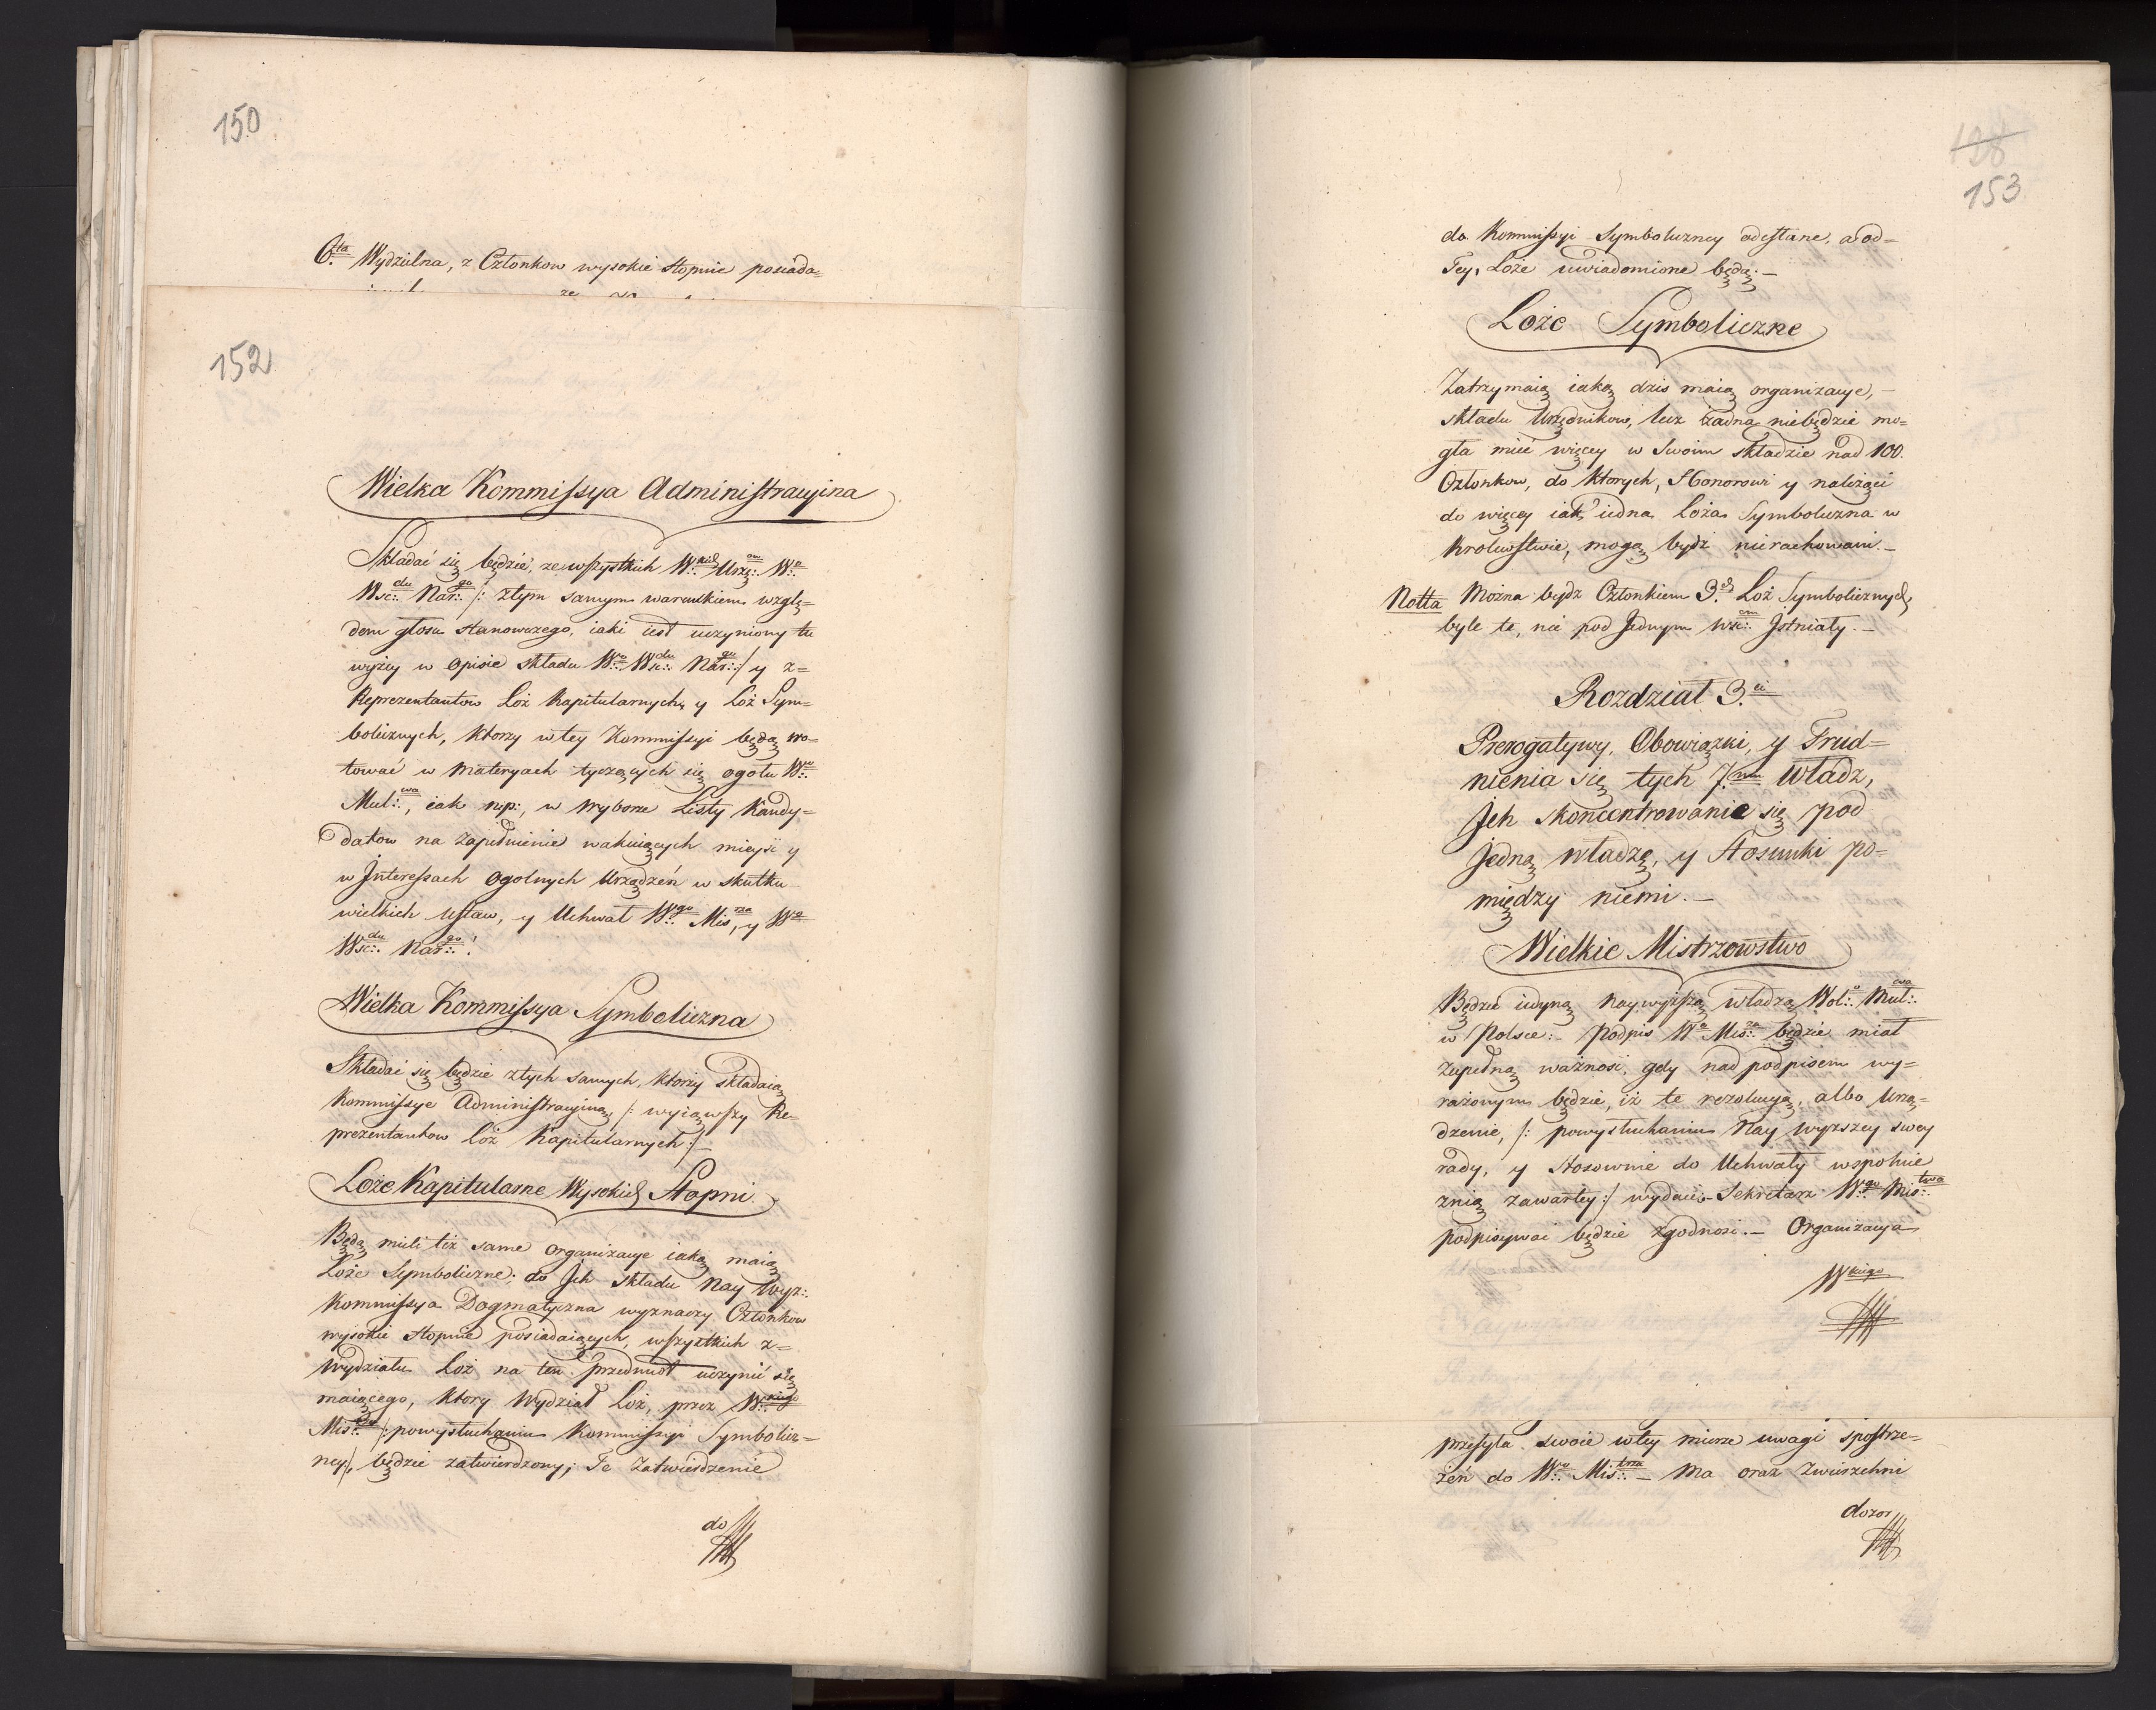 150
6.ta Wydzielna, z Członkow wysokie stopnie posiada=
152
Wielka Kommissya Administracyina
Składać się będzie, ze wszystkich W.:kich Urzę:.ow W.:o
Wsc:.du Nar:.go /: z tym samym warunkiem wzglę=
dem głosu stanowczego, iaki iest uczyniony tu
wyżey w Opisie składu W.:o Wsc:.du Nar:.go :/ y z=
Reprezentantow Loż Kapitularnych, y Loż Sym=
bolicznych, ktorzy w tey Kommissyi będą wo=
tować w Materyach tyczących się ogołu W.:o
Mul:.wa, iak np:, w wyborze Listy Kandy=
datow na zapełnienie wakuiących mieysc y
w Interessach Ogolnych Urządzeń w skutku
wielkich Ustaw, y Uchwał W.:go Mis.rza, y W.o
Wsc:.du Nar:.go !
Wielka Kommissya Symboliczna
Składać się będzie z tych samych, ktorzy składaią
Kommissye Administracyiną, /: wyiąwszy Re=
prezentantow Loż Kapitularnych :/ –
Loże Kapitularne Wysokich Stopni.
Będą mieli też same Organizacye iaką maią
Loże Symboliczne; do Jch składu Nay Wyz:.
Kommissya Dogmatyczna wyznaczy Członkow
wysokie stopnie posiadaiących, wszystkich z=
Wydziału Loż na ten przedmiot uczynić się
maiącego, ktory Wydział Loż, przez W.:kiego
Mis:. /: po wysłuchaniu Kommissyi Symbolicz=
ney :/, będzie zatwierdzony; Te Zatwierdzenie
do
128
153
do Kommissyi Symboliczney odesłane, a od=
Tey, Loże uwiadomione będą. –
Loże Symboliczne
Zatrzymaią iaką dzis maią organizacye, –
składu Urzędnikow, lecz żadna niebędzie mo=
gła mieć więcey w Swoim składzie nad 100.
Członkow, do ktorych, Honorowi y należący
do więcey iak iedna Loża Symboliczna w
Krolewstwie, mogą bydź nierachowani. –
Notta Można bydz Członkiem 3.ch Loż Symbolicznych,
byle te, nie pod Jednym Wsc:.em Jstniały. –
Rozdział 3.ci
Prerogatywy, Obowiązki, y Trud=
nienia się tych 7.miu Władz,
Jch skoncentrowanie się pod
jedną władzę, y Stosunki po=
między niemi. –
Wielkie Mistrzowstwo
Będzie iedyną naywyższą władzą Wol:.o Mul:.wa
w Polsce:– Podpis W.o Mis:.za będzie miał
zupełną ważnosć, gdy nad podpisem wy=
rażonym będzie, iż te rezolucyą, albo Urzą=
dzenie, /: po wysłuchaniu Nay wyższey swey
rady, y stosownie do Uchwały wspolnie
z nią zawartey :/ wydaie. Sekretarz W.:go Mis:.twa
podpisywać będzie zgodnosć. – Organizacya
W.kiego
przesyła swoie w tey mierze uwagi spostrze=
żeń do W.:o Mis:.trza – Ma oraz Zwierzchni
dozor